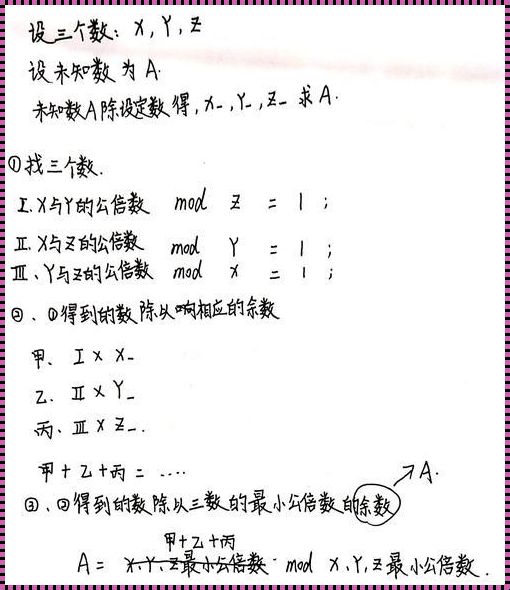 设三个数: X, Y, Z
设未知数为 A.
未知数A除设定数得, X_, Y_, Z_ 求 A.
①找三个数.
I. X与Y的公倍数 mod Z = 1 ;
II. X与Z的公倍数 mod Y = 1 ;
III、Y与Z的公倍数 mod X = 1 ;
②、①得到的数除以相应的余数
甲、 I × X_
乙. II × Y_
丙、 III × Z_.
甲 + 乙 + 丙 = ....
→A.
③、②得到的数除以三数的最小公倍数的余数
甲+乙+丙
A = X、Y、Z最小公倍数 mod X、Y、Z最小公倍数.